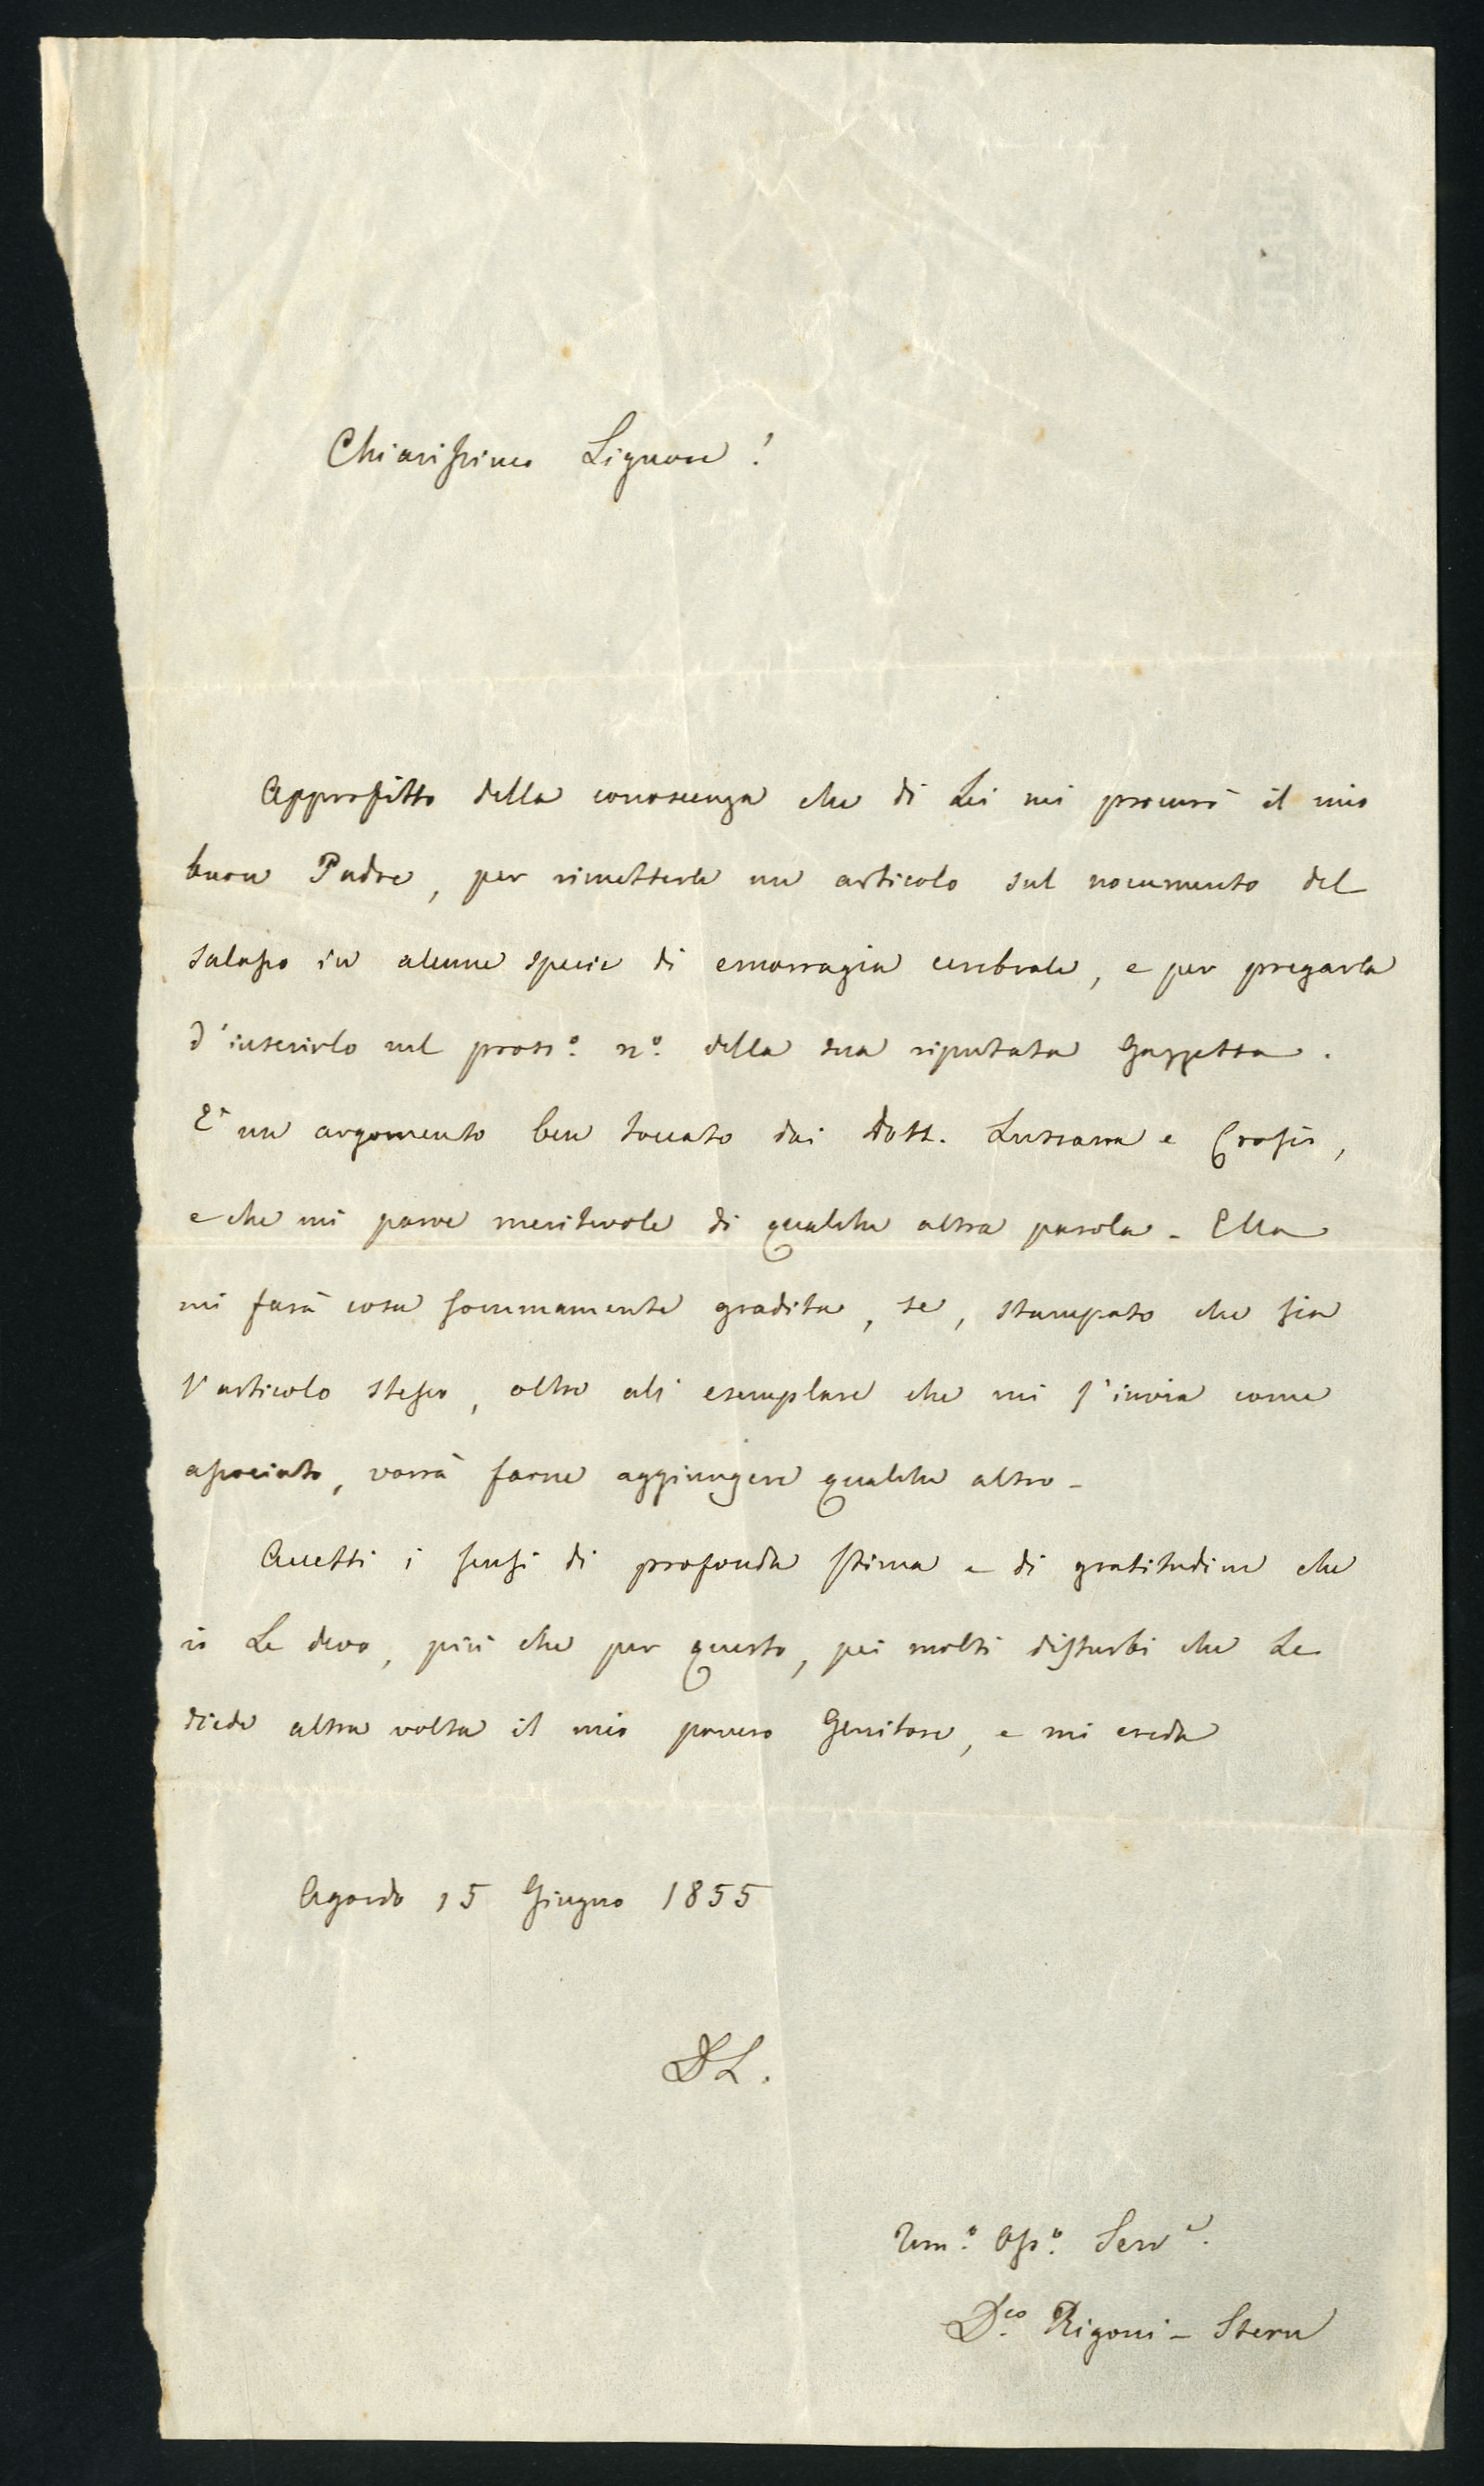 Chiarissimo Signore!
Approfitto della conoscenza che di Lei mi procurò il mio
buon Padre, per rimetterle un articolo sul nocumento del
salasso in alcune specie di emorragia cerebrale, e per pregarla
d'inserirlo nel pross.º nº. della sua riputata Gazzetta.
È un argomento ben toccato dai Dott. Lussana e
e che mi parve meritevole di qualche altra parola - Ella
mi farà cosa sommamente gradita, se, stampato che sia
l'articolo stesso, oltre all' esemplare che mi s'invia come
associato, vorrà farne aggiungere qualche altro -
Accetti i sensi di profonda stima e di gratitudine che
io Le devo, più che per questo, pei molti disturbi che Le
diede altra volta il mio povero Genitore, e mi creda
Agordo 15 Giugno 1855
DL.
Um.º Oss.º Serv.e
D.co Rigoni - Stern